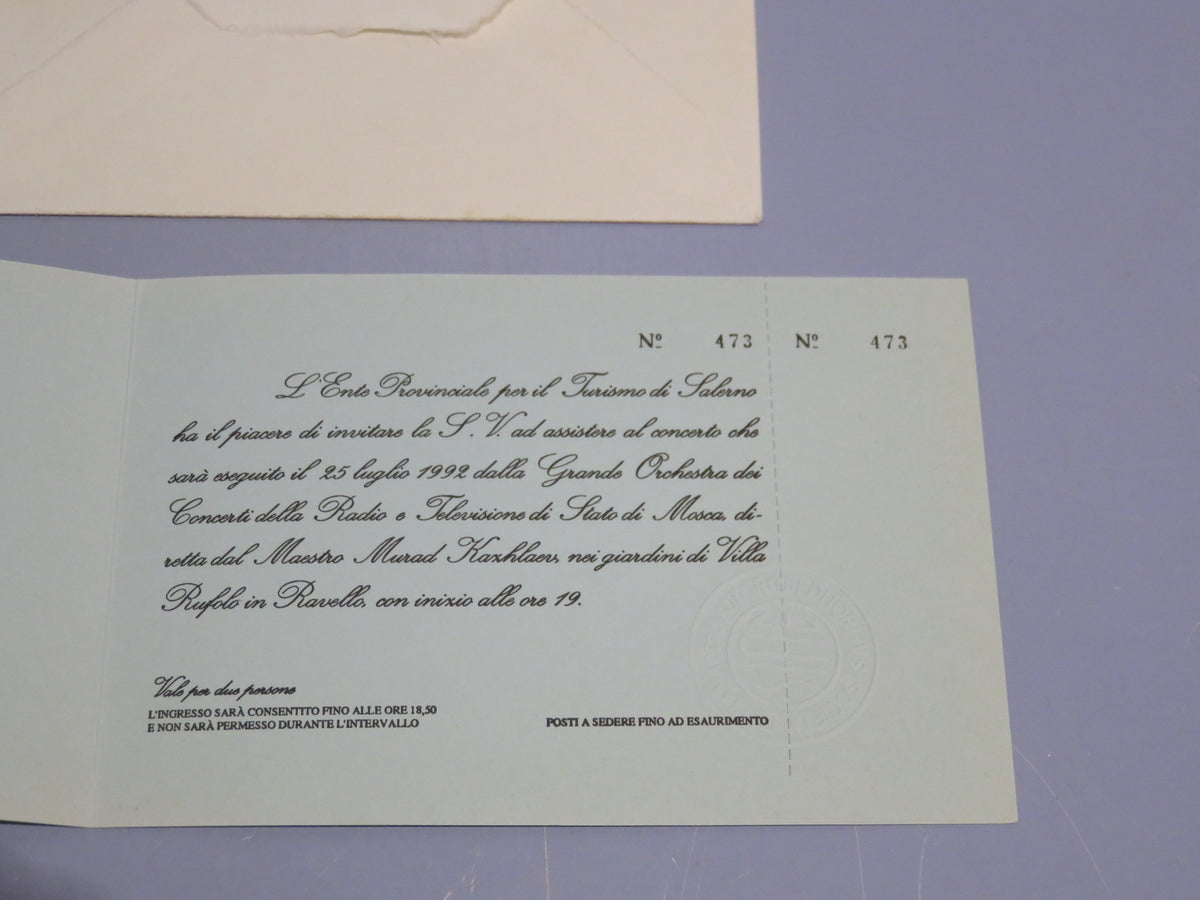 Nº 473 Nº 473
L'Ente Provinciale per il Turismo di Salerno
ha il piacere di invitare la S. V. ad assistere al concerto che
sarà eseguito il 25 luglio 1992 dalla Grande Orchestra dei
Concerti della Radio e Televisione di Stato di Mosca, di-
retta dal Maestro Murad Kazhlaev, nei giardini di Villa
Rufolo in Ravello, con inizio alle ore 19.
Vale per due persone
L'INGRESSO SARÀ CONSENTITO FINO ALLE ORE 18,50
E NON SARÀ PERMESSO DURANTE L'INTERVALLO
POSTI A SEDERE FINO AD ESAURIMENTO